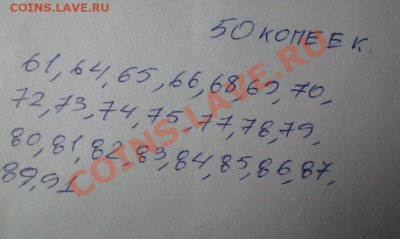 COINS.LAVE.RU
COINS.LAVE.RU
50 КОПЕЕК.
61, 64, 65, 66, 68, 69, 70,
72, 73, 74, 75, 77, 78, 79,
80, 81, 82, 83, 84, 85, 86, 87,
89, 91
COINS.LAVE.RU